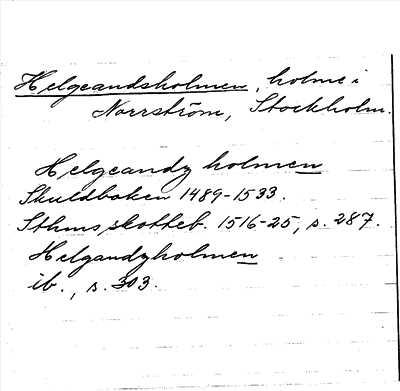 Helgeandsholmen, holme i
Norrström, Stockholm.
Helgeandz holmen
Skuldboken 1489-1533.
Sthms skotteb. 1516-25, s. 287.
Helgandzholmen
ib., s. 303.